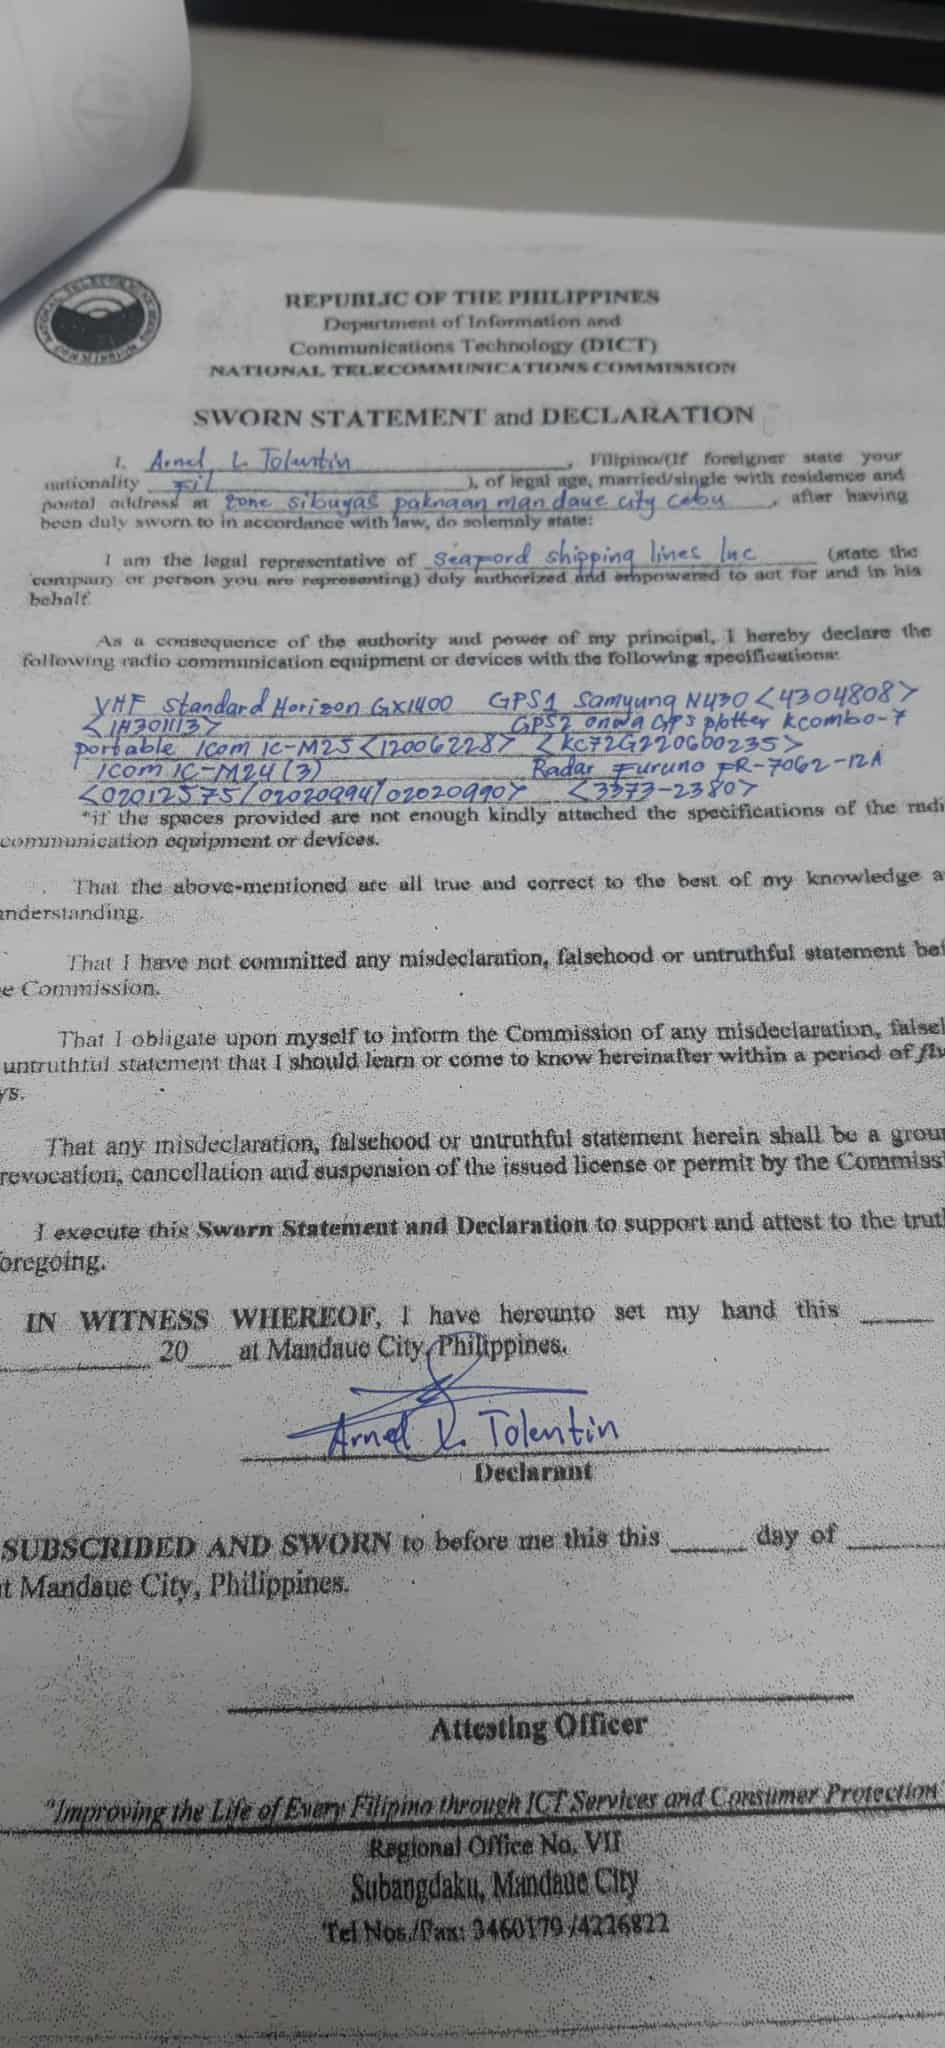 REPUBLIC OF THE PHILIPPINES
Department of Information and
Communications Technology (DICT)
NATIONAL TELECOMMUNICATIONS COMMISSION
SWORN STATEMENT and DECLARATION
I, Arnel L. Tolentin, Filipino/(If foreigner state your
nationality Fil), of legal age, married/single with residence and
postal address at zone sibuyas paknaan mandaue city cebu, after having
been duly sworn to in accordance with law, do solemnly state:
I am the legal representative of Seaford shipping lines Inc (state the
company or person you are representing) duly authorized and empowered to act for and in his
behalf.
As a consequence of the authority and power of my principal, I hereby declare the
following radio communication equipment or devices with the following specifications:
VHF Standard Horizon GX1400 GPS1 Samyung N430 <4304808>
<1H301113> GPS2 onwa GPS plotter Kcombo-7
portable Icom IC-M25 <12006228> <KC72G220600235>
Icom IC-M24 (3) Radar Furuno FR-7062-12A
<02012575/02020994/02020990> <3373-2380>
*if the spaces provided are not enough kindly attached the specifications of the radi
communication equipment or devices.
That the above-mentioned are all true and correct to the best of my knowledge a
nderstanding.
That I have not committed any misdeclaration, falsehood or untruthful statement bef
e Commission.
That I obligate upon myself to inform the Commission of any misdeclaration, falsel
untruthful statement that I should learn or come to know hereinafter within a period of fiv
ys.
That any misdeclaration, falsehood or untruthful statement herein shall be a groun
revocation, cancellation and suspension of the issued license or permit by the Commiss
I execute this Sworn Statement and Declaration to support and attest to the trut
oregoing.
IN WITNESS WHEREOF, I have hereunto set my hand this ____
____ 20__ at Mandaue City, Philippines.
Arnel L. Tolentin
Declarant
SUBSCRIBED AND SWORN to before me this this ____ day of ____
t Mandaue City, Philippines.
Attesting Officer
"Improving the Life of Every Filipino through ICT Services and Consumer Protection
Regional Office No. VII
Subangdaku, Mandaue City
Tel Nos./Fax: 3460179 /4226822